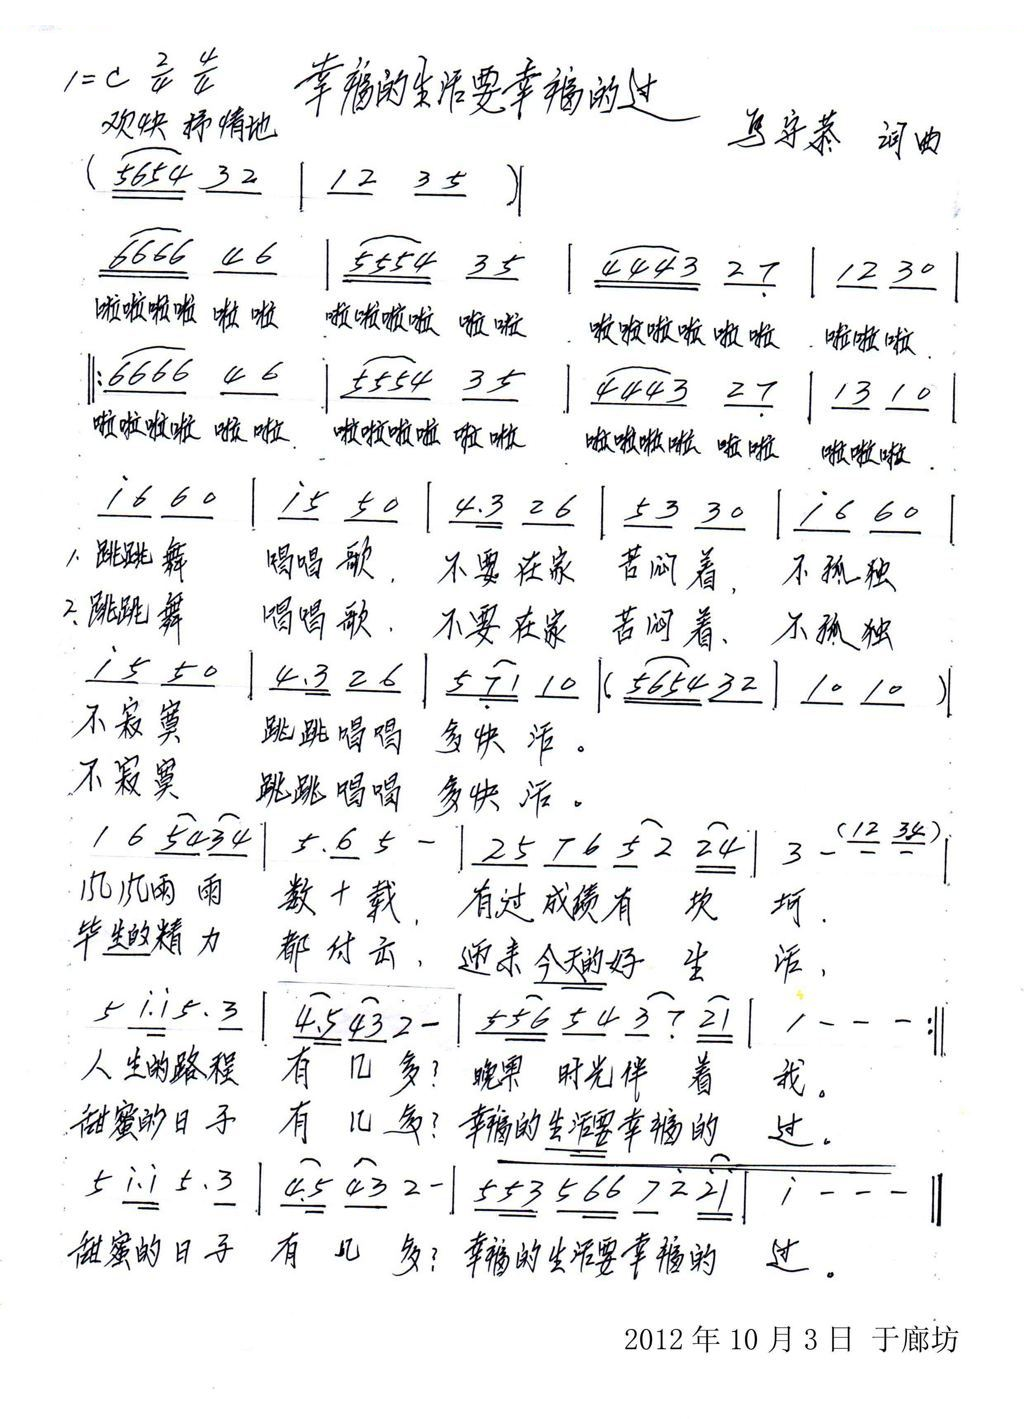 1=C 2/4 4/4 幸福的生活要幸福的过
欢快 抒情地 守恭 词曲
(5654 32 | 12 35 )|
6666 46 | 5554 35 | 4443 27̣ | 12 30 |
啦啦啦啦 啦啦 啦啦啦啦 啦啦 啦啦啦啦 啦啦 啦啦啦.
‖:6666 46 | 5554 35 | 4443 27̣ | 13 10 |
啦啦啦啦 啦啦. 啦啦啦啦 啦啦 啦啦啦啦 啦啦 啦啦啦.
i6 60 | i5 50 | 4.3 26 | 53 30 | i6 60 |
1. 跳跳舞 唱唱歌, 不要在家 苦闷着, 不孤独
2. 跳跳舞 唱唱歌, 不要在家 苦闷着, 不孤独
i5 50 | 4.3 26 | 5 7̣1 10 |(5654 32 | 10 10 )|
不寂寞 跳跳唱唱 多快活。
不寂寞 跳跳唱唱 多快活。
1 6 5434 | 5.6 5 - | 25 76 5 2 24 | 3 - (12 34) |
风风雨雨 数十载, 有过成绩有坎坷,
毕生的精力 都付去, 迎来今天的好生活,
5 i.i 5.3 | 4.5 43 2 - | 556 54 3 7 21 | 1 - - - :‖
人生的路程 有几多? 晚果时光伴着我。
甜蜜的日子 有几多? 幸福的生活要幸福的过。
5 i.i 5.3 | 4.5 43 2 - | 553 566 7 2̇ 2̇i | i - - - ‖
甜蜜的日子 有几多? 幸福的生活要幸福的过。
2012 年 10 月 3 日 于廊坊